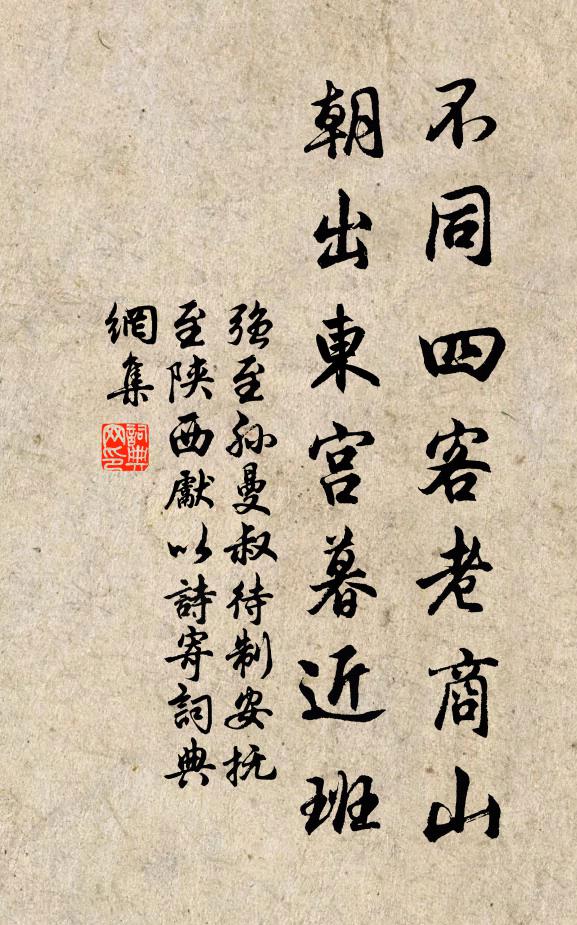 不同四客老商山
朝出東宮暮近班
強至孫曼叔待制安抚
至陕西獻以詩寄詞典
網集
詞典
网印